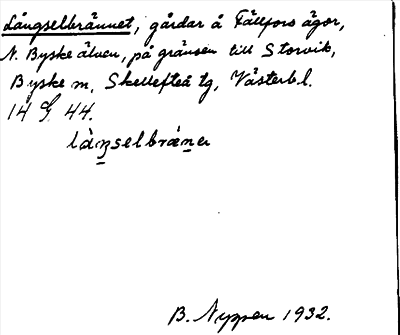 Långselbrännet, gårdar å Fällfors ägor,
N. Byske älven, på gränsen till Storvik,
Byske sn, Skellefteå tg, Västerbl.
14 G 44.
làŋselbræ̀nɐ
B. Nyppen 1932.